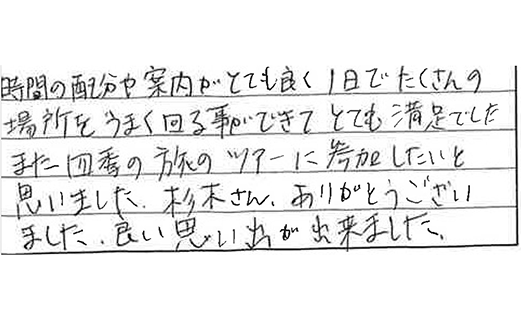 時間の配分や案内がとても良く1日でたくさんの
場所をうまく回る事ができてとても満足でした
また四季の旅のツアーに参加したいと
思いました、杉本さん、ありがとうござい
ました、良い思い出が出来ました、